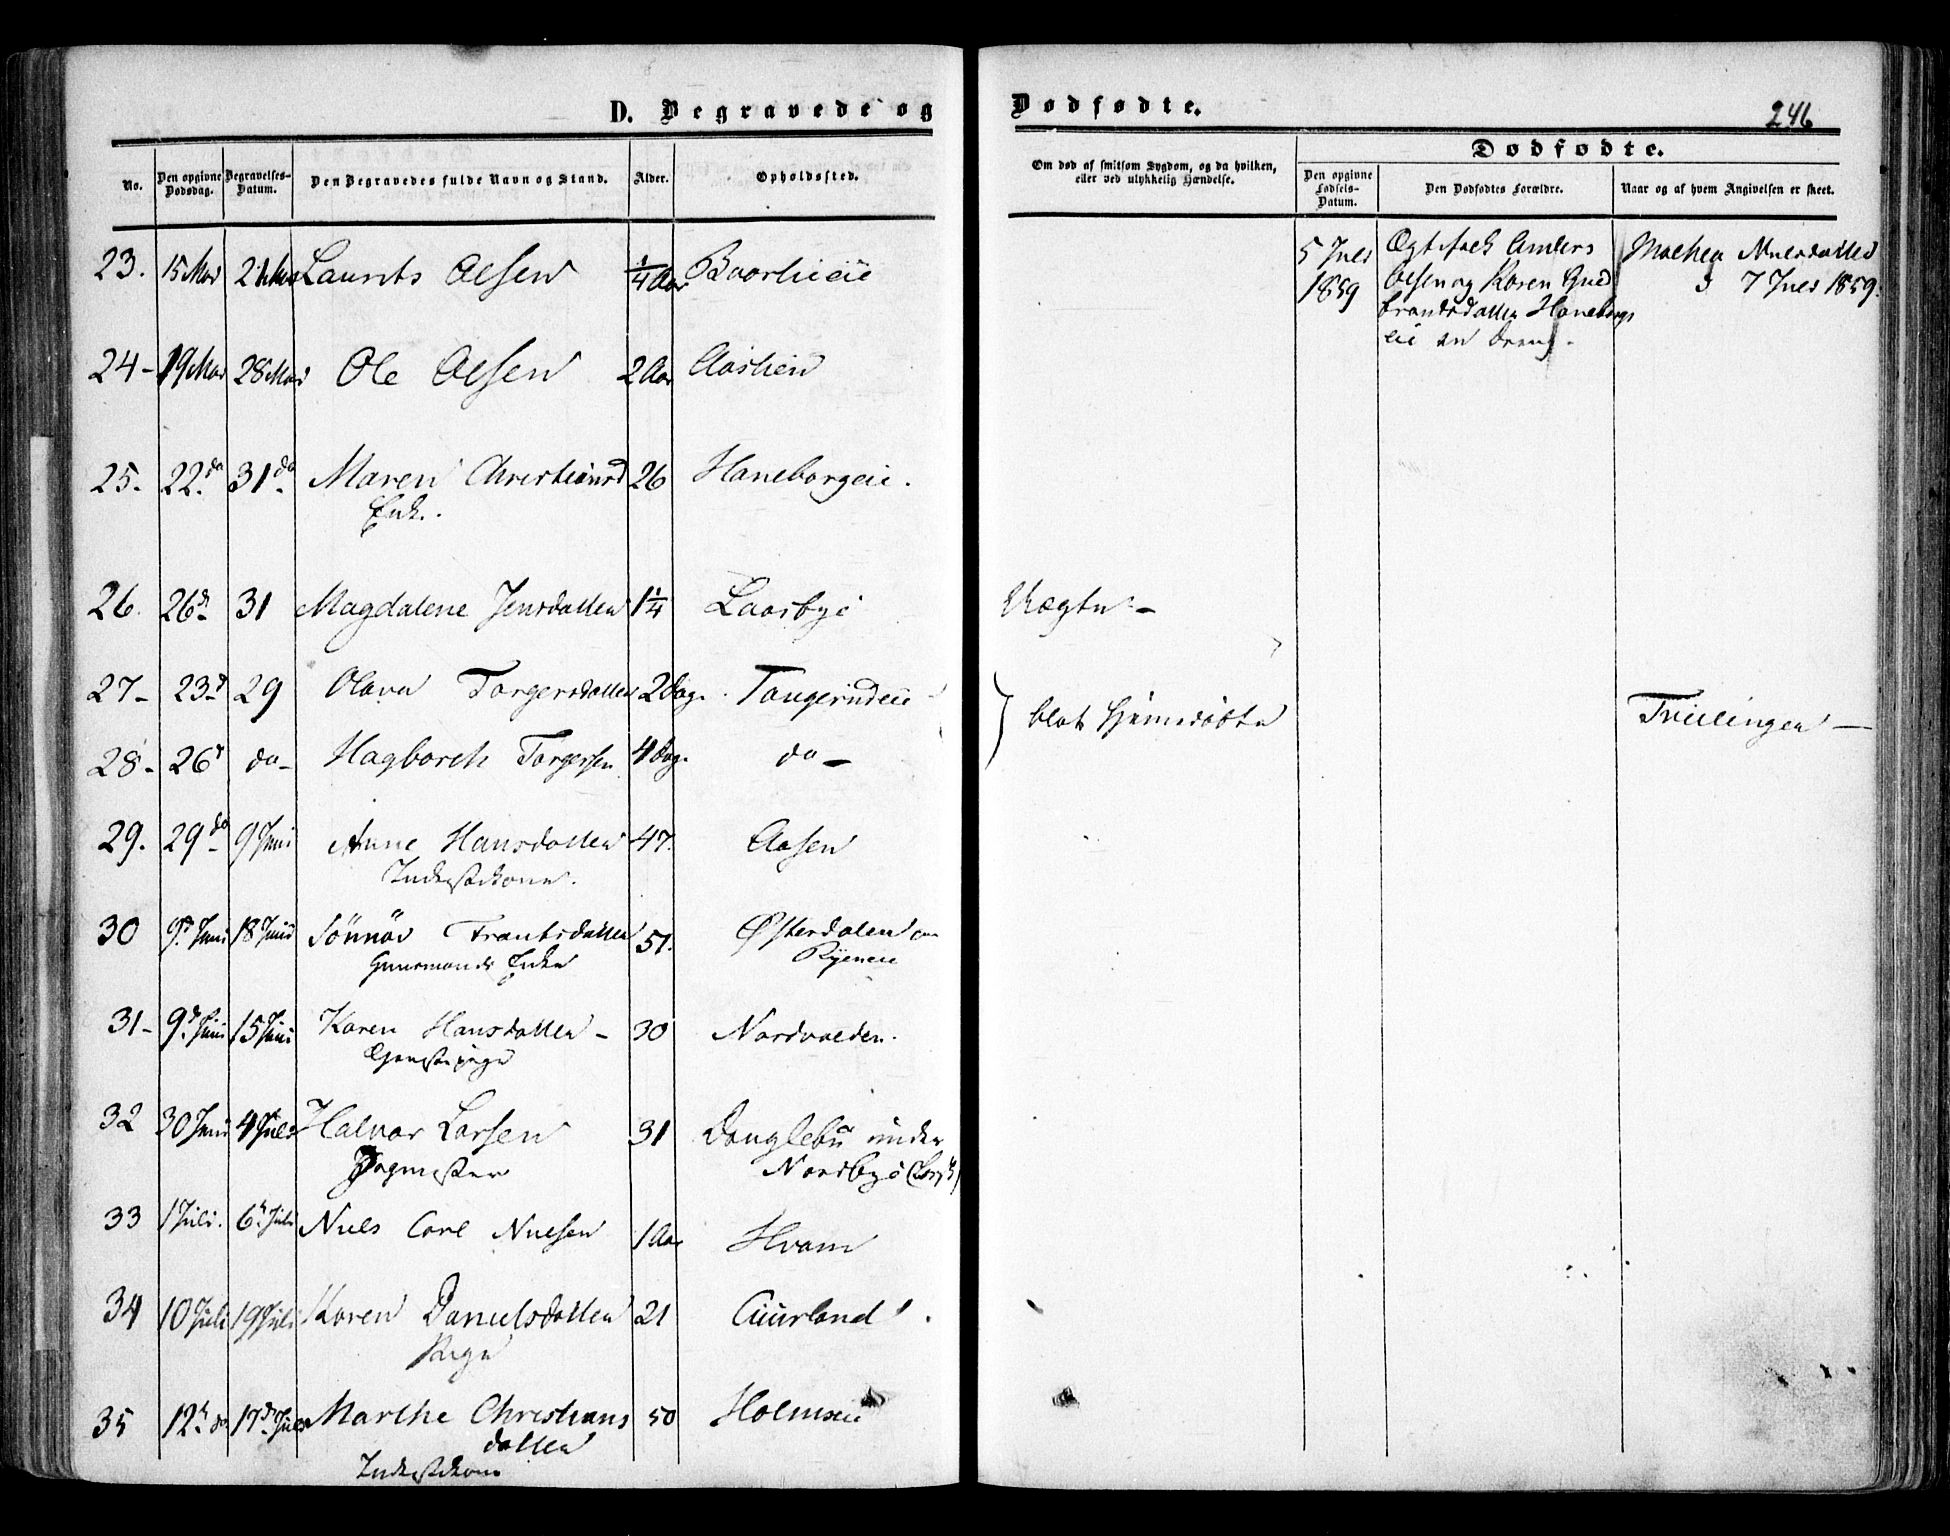 D. Begravede og Dødfødte.
246
Dødfødte.
No.
Den opgivne Dødsdag.
Begravelses-Datum.
Den Begravedes fulde Navn og Stand.
Alder.
Opholdssted.
Om død af smitsom Sygdom, og da hvilken,
eller ved ulykkelig Hændelse.
Den opgivne Fødsels-Datum.
Den Dødfødtes Forældre.
Naar og af hvem Angivelsen er skeet.
23. 15 Mai Laurits Olsen 1/4 Aar
5 Juli 1859
Ægtefolk Anders
Olsen og Karen Gud
brandsdatter Haneborgs
eie en Dreng.
7 Juli 1859.
24- 19 Mai 28 Mai Ole Olsen 2 Aar Aaslien
25. 22. do 31 do Maren Christiansd 26 Haneborgeie.
Enk.
26. 26 d 31 Magdalene Jensdatter 1 1/4 Laarbye
27- 23 d 29 Olava Torgersdatter 2 Dage Tangerudeie
28- 26 d do- Hagbarth Torgersen 4 Dag. do-
Tvillinger -
29. 29 do 9 Juni Anne Hansdatter 47. Aasen
Inderstkone.
30 9 d Juni 18 Juni Sönnöv Frantsdatter 51. Østerdalen
Gaardmands Enke Ryeneie
31- 9 d Juni 15 Juni Karen Hansdatter - 30 Nordvalden.
Tjenestepige
32 30 Juni 4 Juli Halvor Larsen 31 under
Nordbye
33 1 Juli. 6 Juli Niels Carl Nielsen 1 Aar Hvam
34 10 Juli 19 Juli Karen Danielsdatter 21 Cuurland.
Pige
35 12 do 17 d Juli Marthe Christians 50 Holmseie
datter
Inderstkone